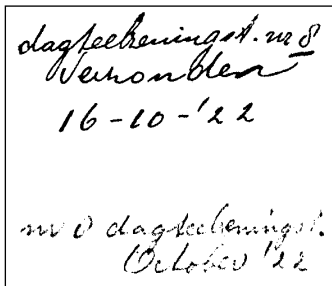 dagteekeningst. nr 8
Verzonden
16-10-'22
nr 8 dagteekeningst.
October '22